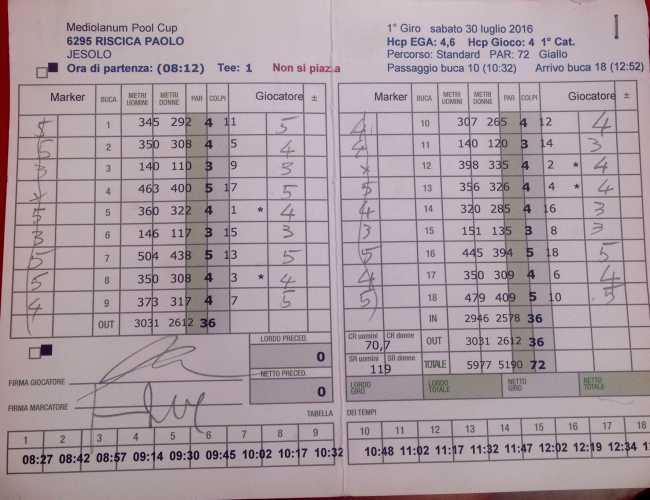 Mediolanum Pool Cup
6295 RISCICA PAOLO
JESOLO
Ora di partenza: (08:12) Tee: 1 Non si piazza
Marker BUCA METRI UOMINI METRI DONNE PAR COLPI Giocatore ±
5 1 345 292 4 11 5
5 2 350 308 4 5 4
3 3 140 110 3 9 3
x 4 463 400 5 17 5
5 5 360 322 4 1 * 4
3 6 146 117 3 15 3
5 7 504 438 5 13 5
5 8 350 308 4 3 * 4
4 9 373 317 4 7 5
OUT 3031 2612 36
LORDO PRECED.
0
NETTO PRECED.
0
FIRMA GIOCATORE
FIRMA MARCATORE
TABELLA
1 2 3 4 5 6 7 8 9
08:27 08:42 08:57 09:14 09:30 09:45 10:02 10:17 10:32
1° Giro sabato 30 luglio 2016
Hcp EGA: 4,6 Hcp Gioco: 4 1° Cat.
Percorso: Standard PAR: 72 Giallo
Passaggio buca 10 (10:32) Arrivo buca 18 (12:52)
Marker BUCA METRI UOMINI METRI DONNE PAR COLPI Giocatore ±
4 10 307 265 4 12 4
4 11 140 120 3 14 3
x 12 398 335 4 2 * 4
5 13 356 326 4 4 * 4
4 14 320 285 4 16 3
3 15 151 135 3 8 3
5 16 445 394 5 18 5
4 17 350 309 4 6 4
5 18 479 409 5 10 5
IN 2946 2578 36
CR uomini CR donne OUT 3031 2612 36
70,7
SR uomini SR donne TOTALE 5977 5190 72
119
LORDO GIRO LORDO TOTALE NETTO GIRO NETTO TOTALE
DEI TEMPI
10 11 12 13 14 15 16 17 18
10:48 11:02 11:17 11:32 11:47 12:02 12:19 12:34